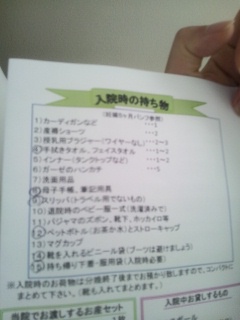 入院時の持ち物
(妊娠8ヶ月パンフ参照)
1)カーディガンなど ・・・1
2)産褥ショーツ ・・・2
3)授乳用ブラジャー(ワイヤーなし)・・・1~2
④手拭きタオル、フェイスタオル ・・・1~2
5)インナー(タンクトップなど) ・・・1~2
6)ガーゼのハンカチ ・・・5
7)洗面用品
⑧母子手帳、筆記用具
⑨スリッパ(トラベル用でないもの)
10)退院時のベビー服一式(洗濯済みで)
11)パジャマのズボン、靴下、ホッカイロ等
⑫ペットボトル(お茶か水)とストローキャップ
13)マグカップ
⑭靴を入れるビニール袋(ブーツは避けましょう)
⑮持ち帰り下着・服用袋(入院時必要)
※入院時のお荷物は分娩終了後までお預かり致しますので、コンパクトに
まとめて下さい。(靴も入れてまとめます。)
当院でお渡しするお産セット
入院中お貸しするもの